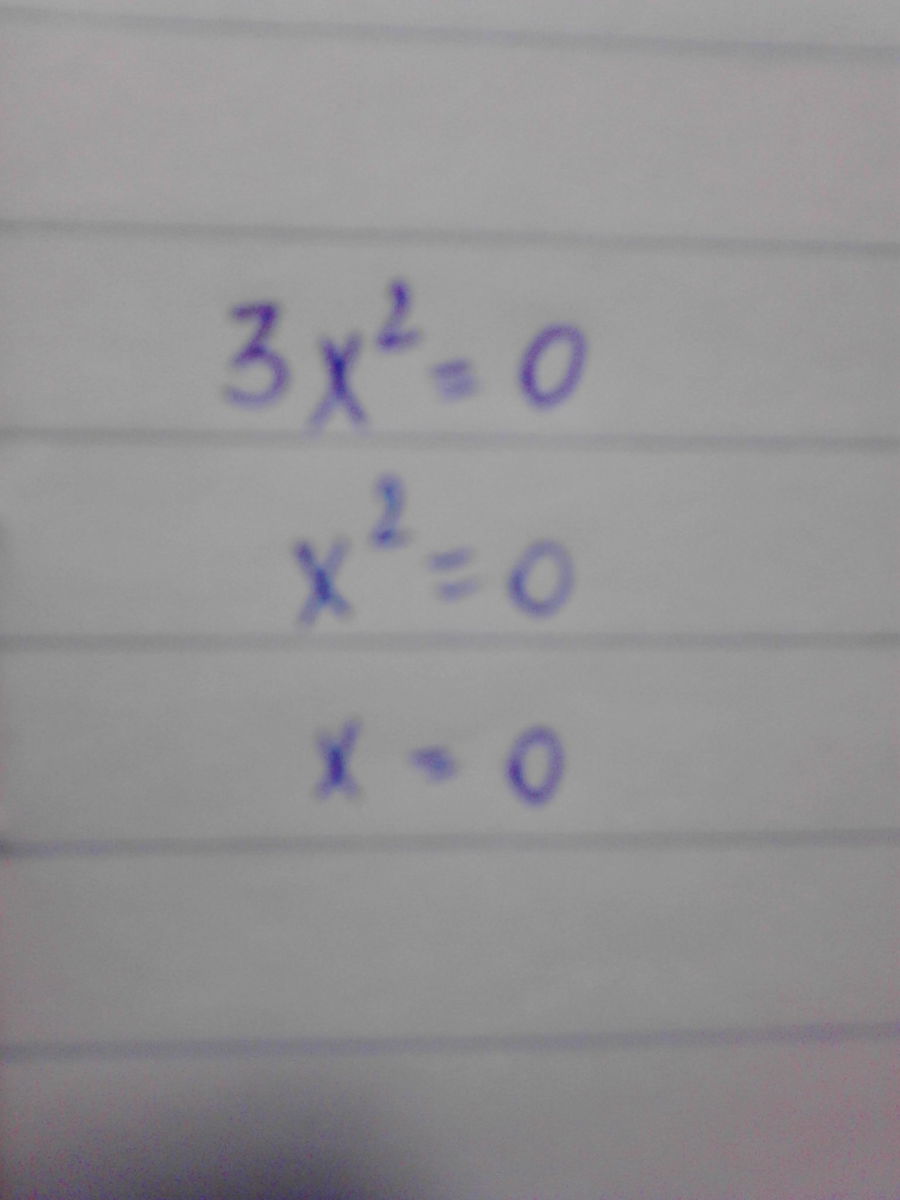 3x² = 0
x² = 0
x = 0